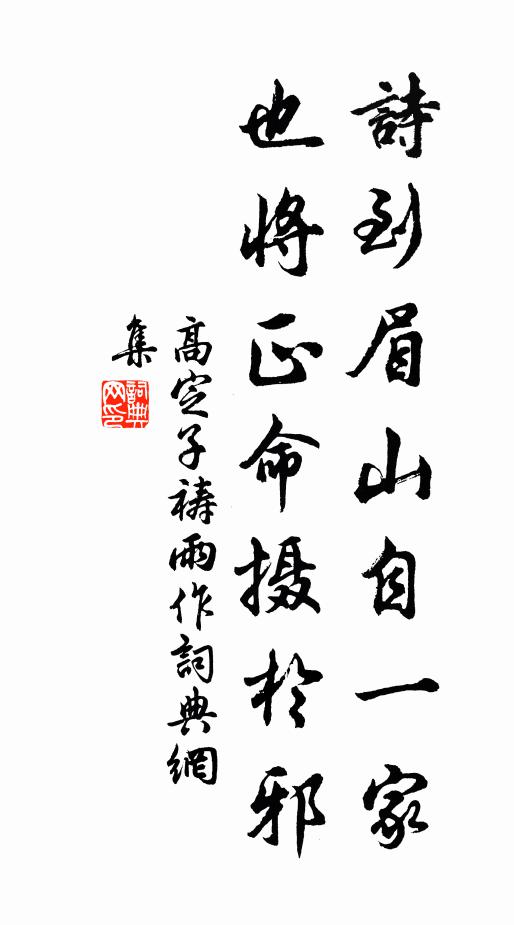 詩到眉山自一家
也將正命摄於邪
高定子禱雨作詞典網
集
詞典
网印